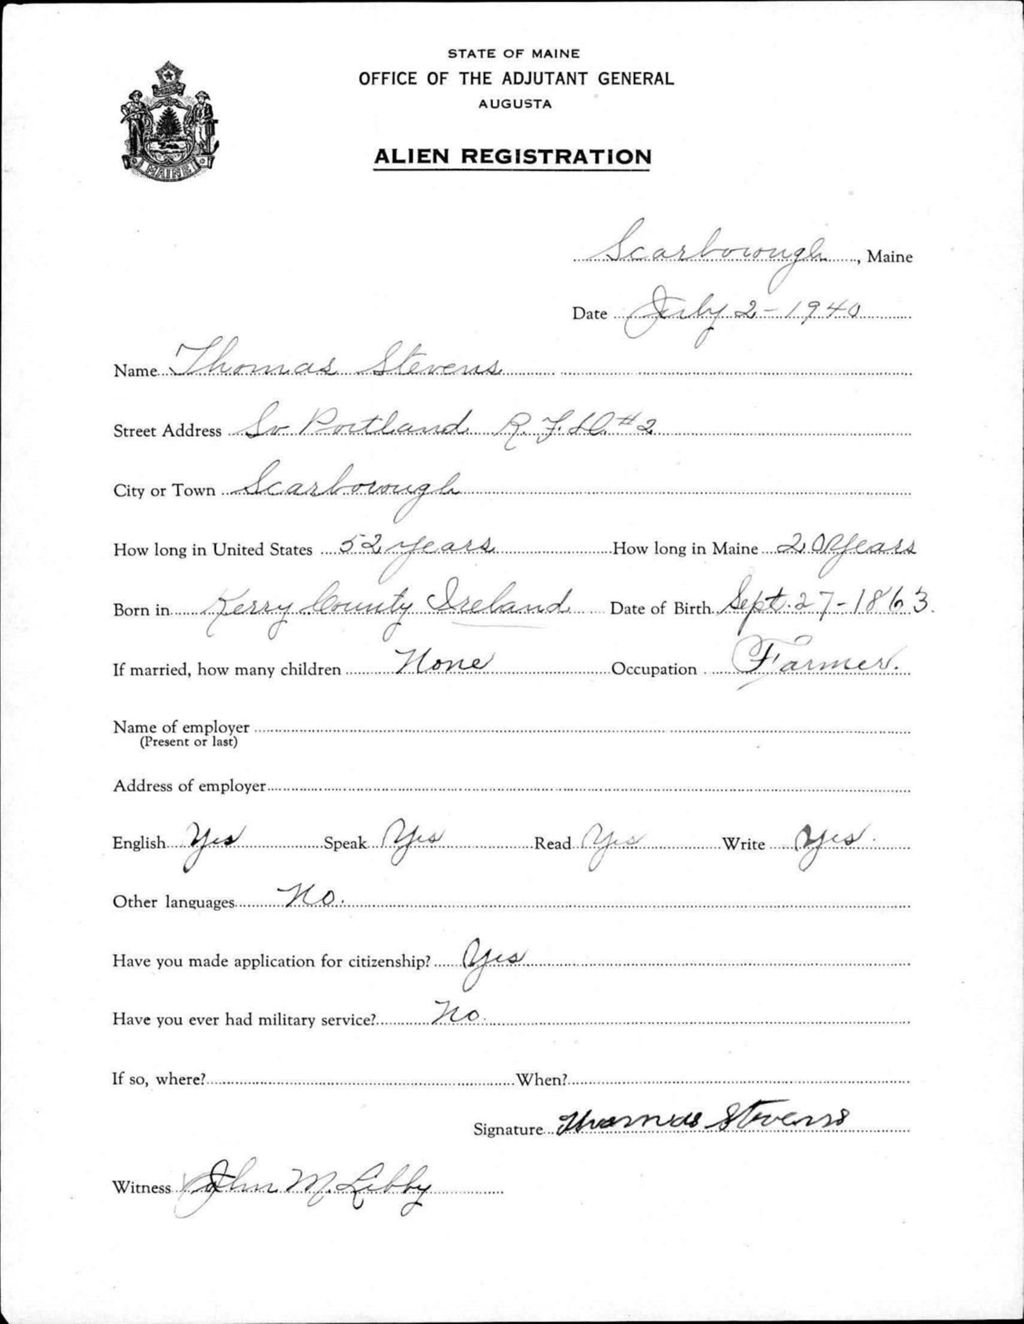 STATE OF MAINE
OFFICE OF THE ADJUTANT GENERAL
AUGUSTA
ALIEN REGISTRATION
MAINE
Scarborough, Maine
Date July 2-1940
Name Thomas Stevens
Street Address So Portland R.F.D.#2
City or Town Scarborough
How long in United States 52 years How long in Maine 20 years
Born in Kerry County Ireland Date of Birth Sept. 27-1863.
If married, how many children None Occupation Farmer.
Name of employer
(Present or last)
Address of employer
English Yes Speak Yes Read Yes Write Yes.
Other languages No.
Have you made application for citizenship? Yes
Have you ever had military service? No.
If so, where? When?
Signature Thomas Stevens
Witness John M. Libby